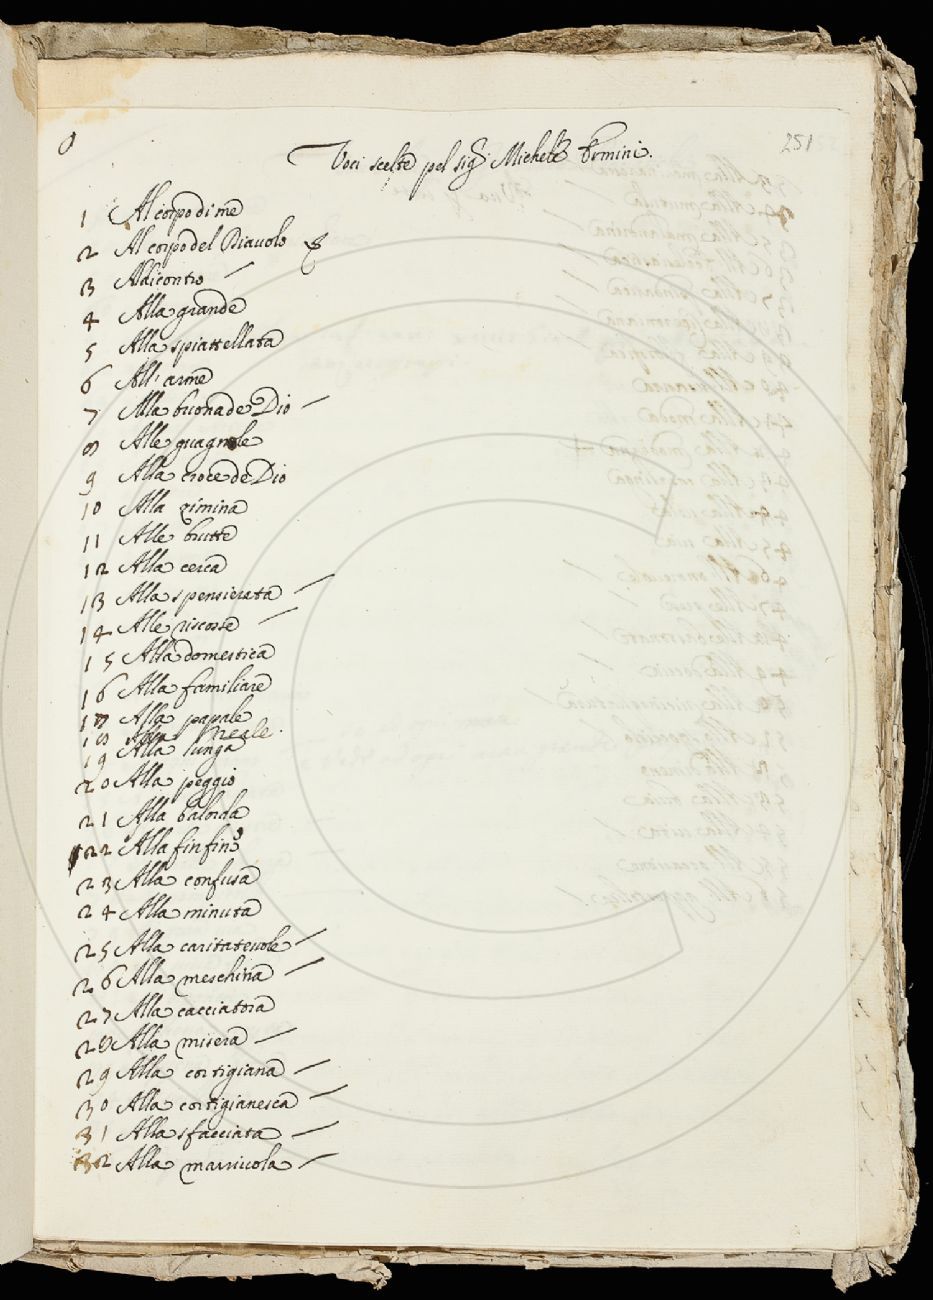 251
Voci scelte pel sig.r Michele Ermini.
1 Al corpo di me
2 Al corpo del Diavolo
3 Aldicontro
4 Alla grande
5 Alla spiattellata
6 All' arme
7 Alla buona de Dio
8 Alle guagnele
9 Alla croce de Dio
10 Alla zimina
11 Alle brutte
12 Alla cerca
13 Alla spensierata
14 Alle riscosse
15 Alla domestica
16 Alla familiare
17 Alla papale
18 Alla Reale.
19 Alla lunga
20 Alla peggio
21 Alla balorda
22 Alla fin fine
23 Alla confusa
24 Alla minuta
25 Alla caritatevole
26 Alla meschina
27 Alla cacciatora
28 Alla misera
29 Alla cortigiana
30 Alla cortigianesca
31 Alla sfacciata
32 Alla marricola